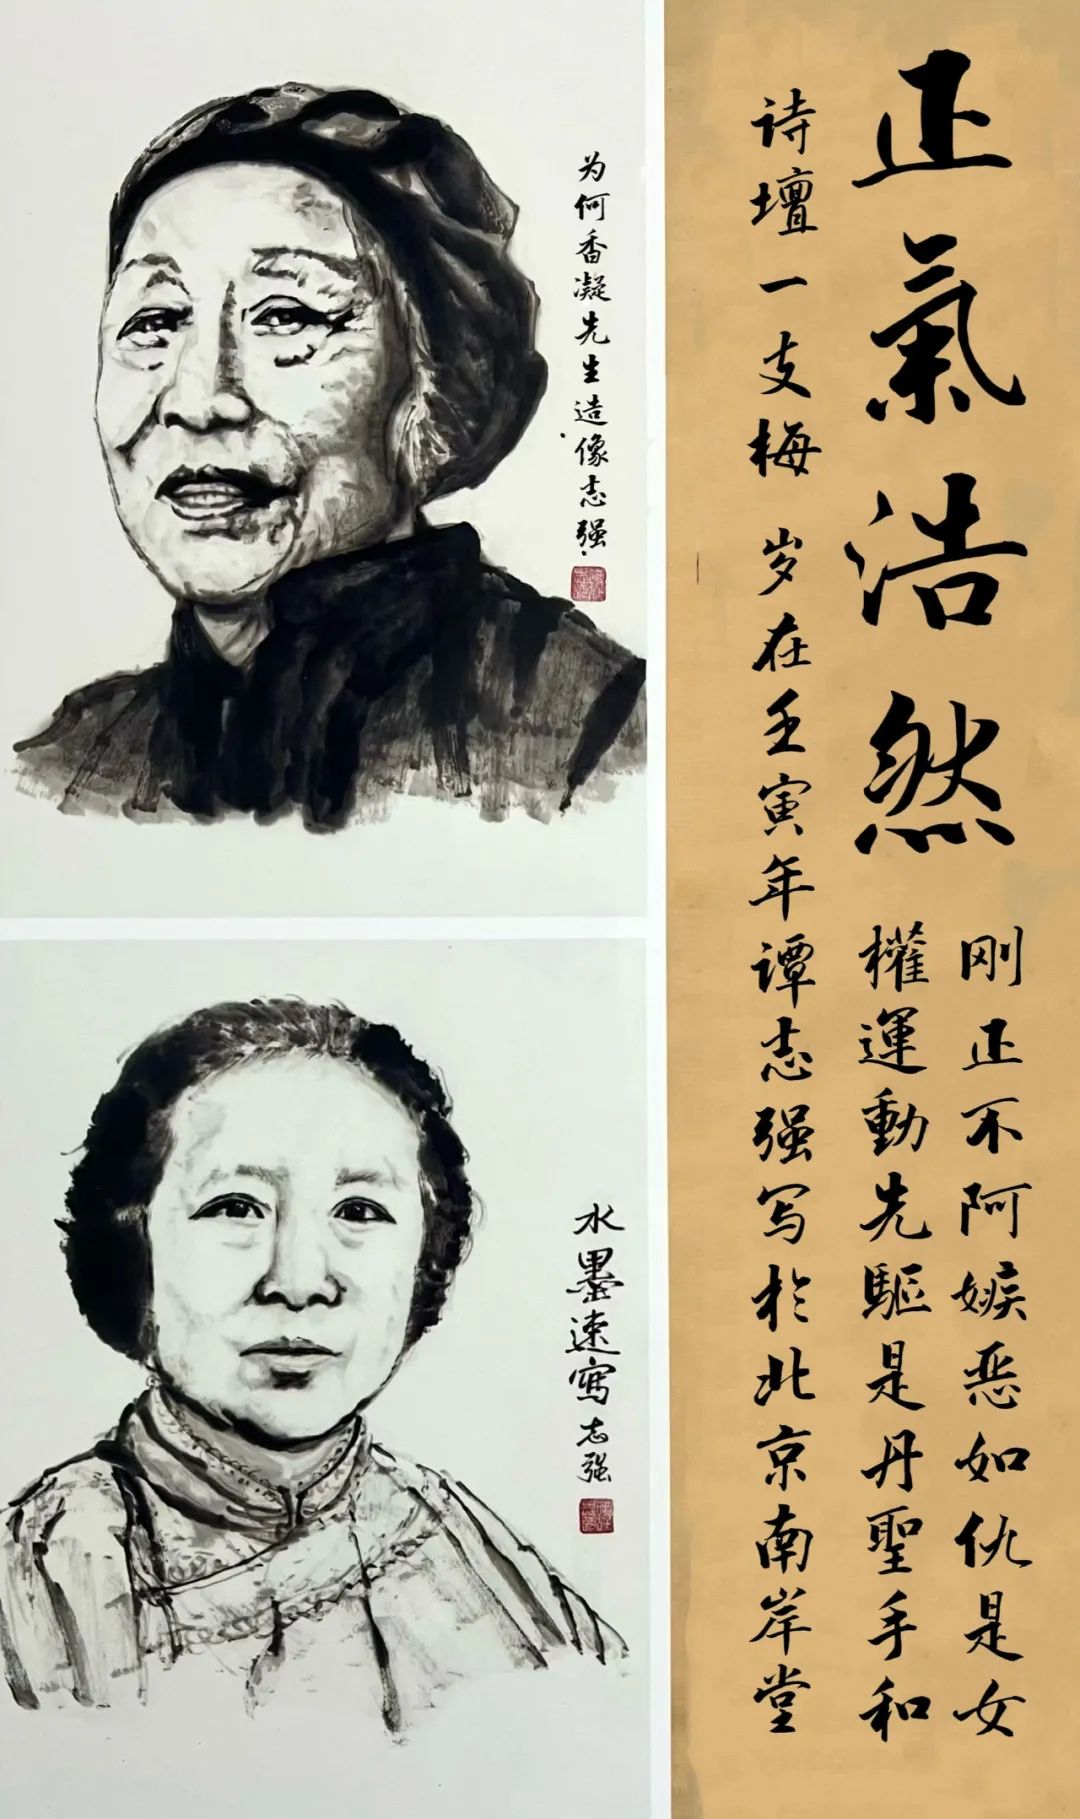 为何香凝先生造像志强
水墨速寫志强
正氣浩然
刚正不阿嫉恶如仇是女
權運動先驅是丹聖手和
诗壇一支梅 岁在壬寅年谭志强写於北京南岸堂